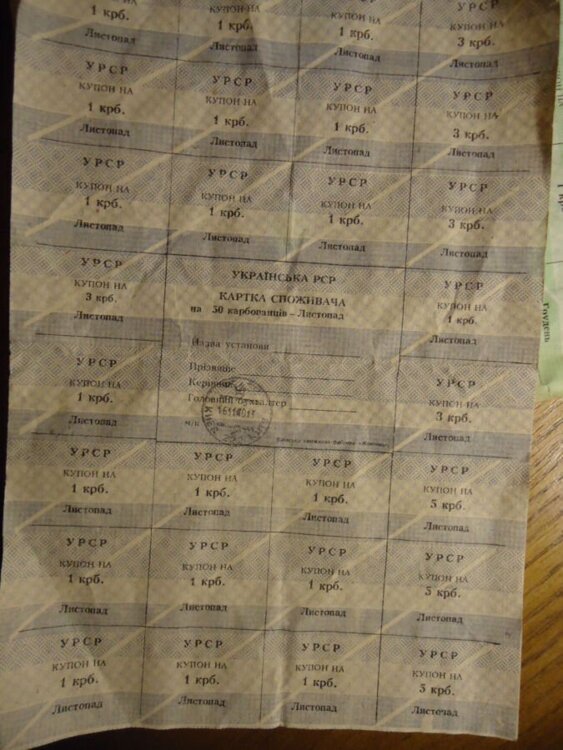 КУПОН НА
1 крб.
Листопад
КУПОН НА
1 крб.
Листопад
1 крб.
Листопад
КУПОН НА
3 крб.
Листопад
УРСР
КУПОН НА
1 крб.
Листопад
УРСР
КУПОН НА
1 крб.
Листопад
УРСР
КУПОН НА
1 крб.
Листопад
УРСР
КУПОН НА
3 крб.
Листопад
УРСР
КУПОН НА
1 крб.
Листопад
УРСР
КУПОН НА
1 крб.
Листопад
УРСР
КУПОН НА
1 крб.
Листопад
УРСР
КУПОН НА
3 крб.
Листопад
УРСР
КУПОН НА
3 крб.
Листопад
УКРАЇНСЬКА РСР
КАРТКА СПОЖИВАЧА
на 50 карбованців - Листопад
Назва установи
Прізвище
Керівник
Головний бухгалтер
м/п
УРСР
КУПОН НА
1 крб.
Листопад
УРСР
КУПОН НА
1 крб.
Листопад
УРСР
КУПОН НА
3 крб.
Листопад
УРСР
КУПОН НА
1 крб.
Листопад
УРСР
КУПОН НА
1 крб.
Листопад
УРСР
КУПОН НА
1 крб.
Листопад
УРСР
КУПОН НА
5 крб.
Листопад
УРСР
КУПОН НА
1 крб.
Листопад
УРСР
КУПОН НА
1 крб.
Листопад
УРСР
КУПОН НА
1 крб.
Листопад
УРСР
КУПОН НА
5 крб.
Листопад
УРСР
КУПОН НА
1 крб.
Листопад
УРСР
КУПОН НА
1 крб.
Листопад
УРСР
КУПОН НА
1 крб.
Листопад
УРСР
КУПОН НА
5 крб.
Листопад
Грудень